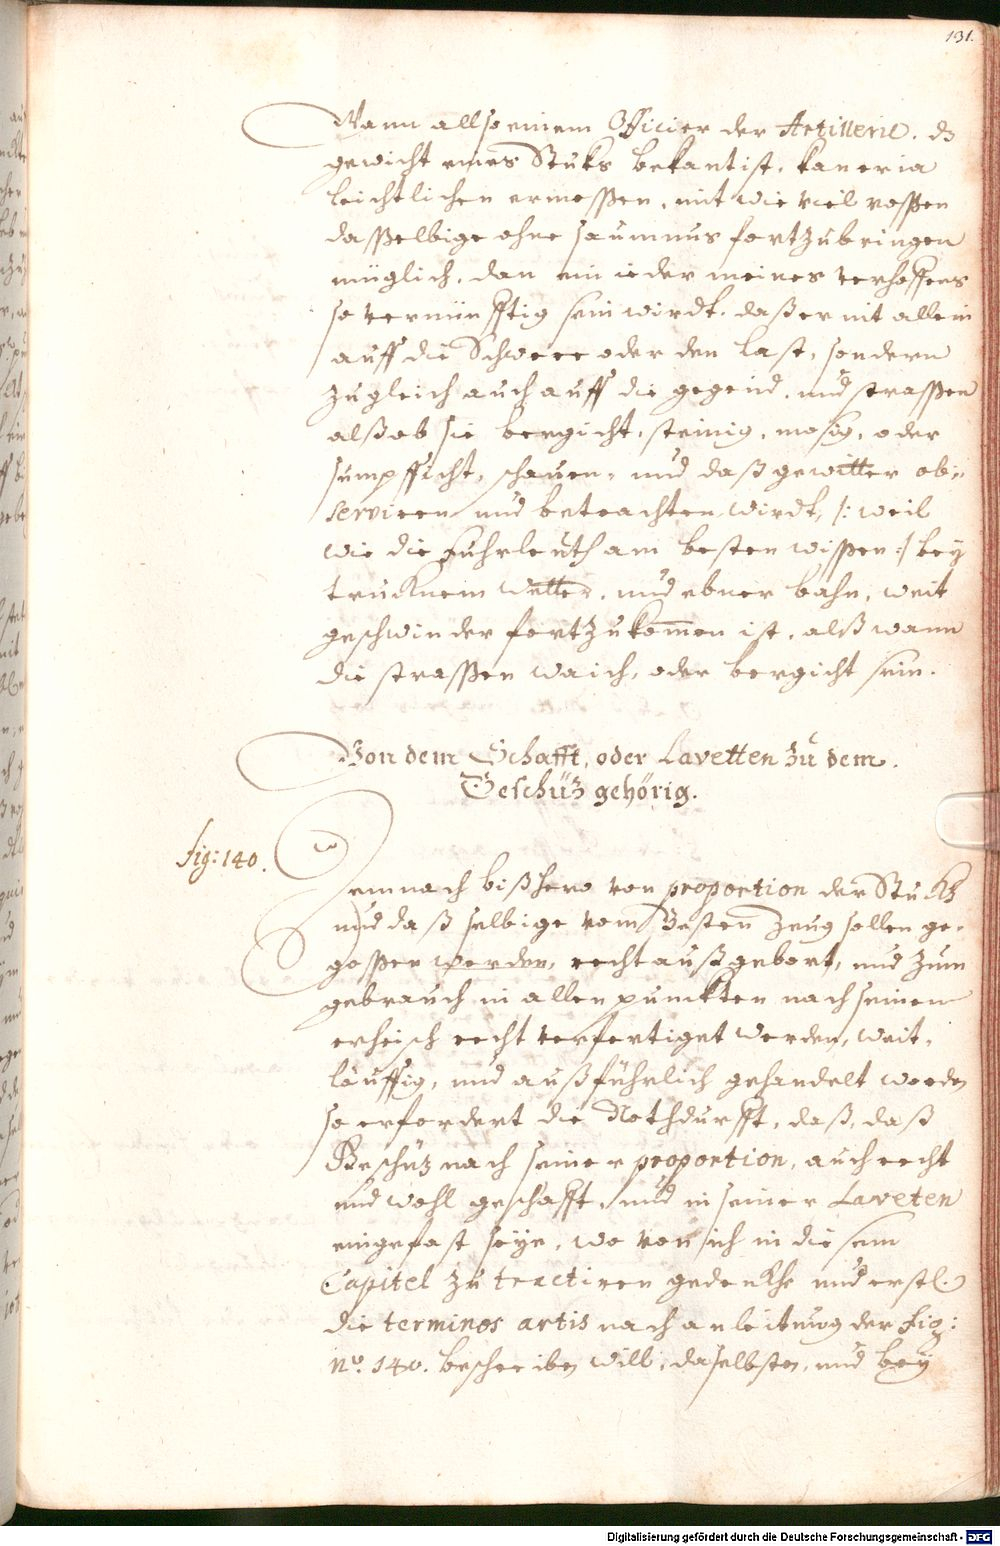 131.
Wann allso einem Officier der Artillerie. dz
gewicht eines Stuks bekant ist, kan er ia
leichtlichen ermeßen, mit wie viel roßen
daßelbige ohne saumnus fortzubringen
müglich, dan ein ieder meines verhoffens
so vernünfftig sein wirdt, daß er nit allein
auff die Schwere oder den last, sondern
zugleich auch auff die gegend, und straßen
alß ob sie bergicht, steinig, mosig, oder
sumpfficht, schauen, und daß gewitter ob-
servieren und betrachten wirdt, /: weil
wie die Fuhrleuth am besten wißen :/ bey
trucknem wetter, und ebner bahn, weit
geschwinder fortzukommen ist, alß wann
die straßen waich, oder bergicht sein.
Von dem Schafft, oder Lavetten zu dem
Geschüz gehörig.
fig: 140.
Demnach bißhero von proportion der Stuckh
und daß selbige vom Besten Zeug sollen ge-
goßen werden, recht außgebort, und zum
gebrauch in allen punckten nach seinem
erheisch recht verfertiget werden, weit-
läuffig, und außführlich gehandelt worden
so erfordert die Nothdurfft, daß, daß
Geschüz nach seiner proportion, auch recht
und wohl geschafft, und in seiner Laveten
eingefast seye, wo von ich in diesem
Capitel zu tractiren gedenckhe und erstl.
die terminos artis nach anleitung der Fig:
No. 140. beschreiben will, daselbsten, und bey
Digitalisierung gefördert durch die Deutsche Forschungsgemeinschaft - DFG